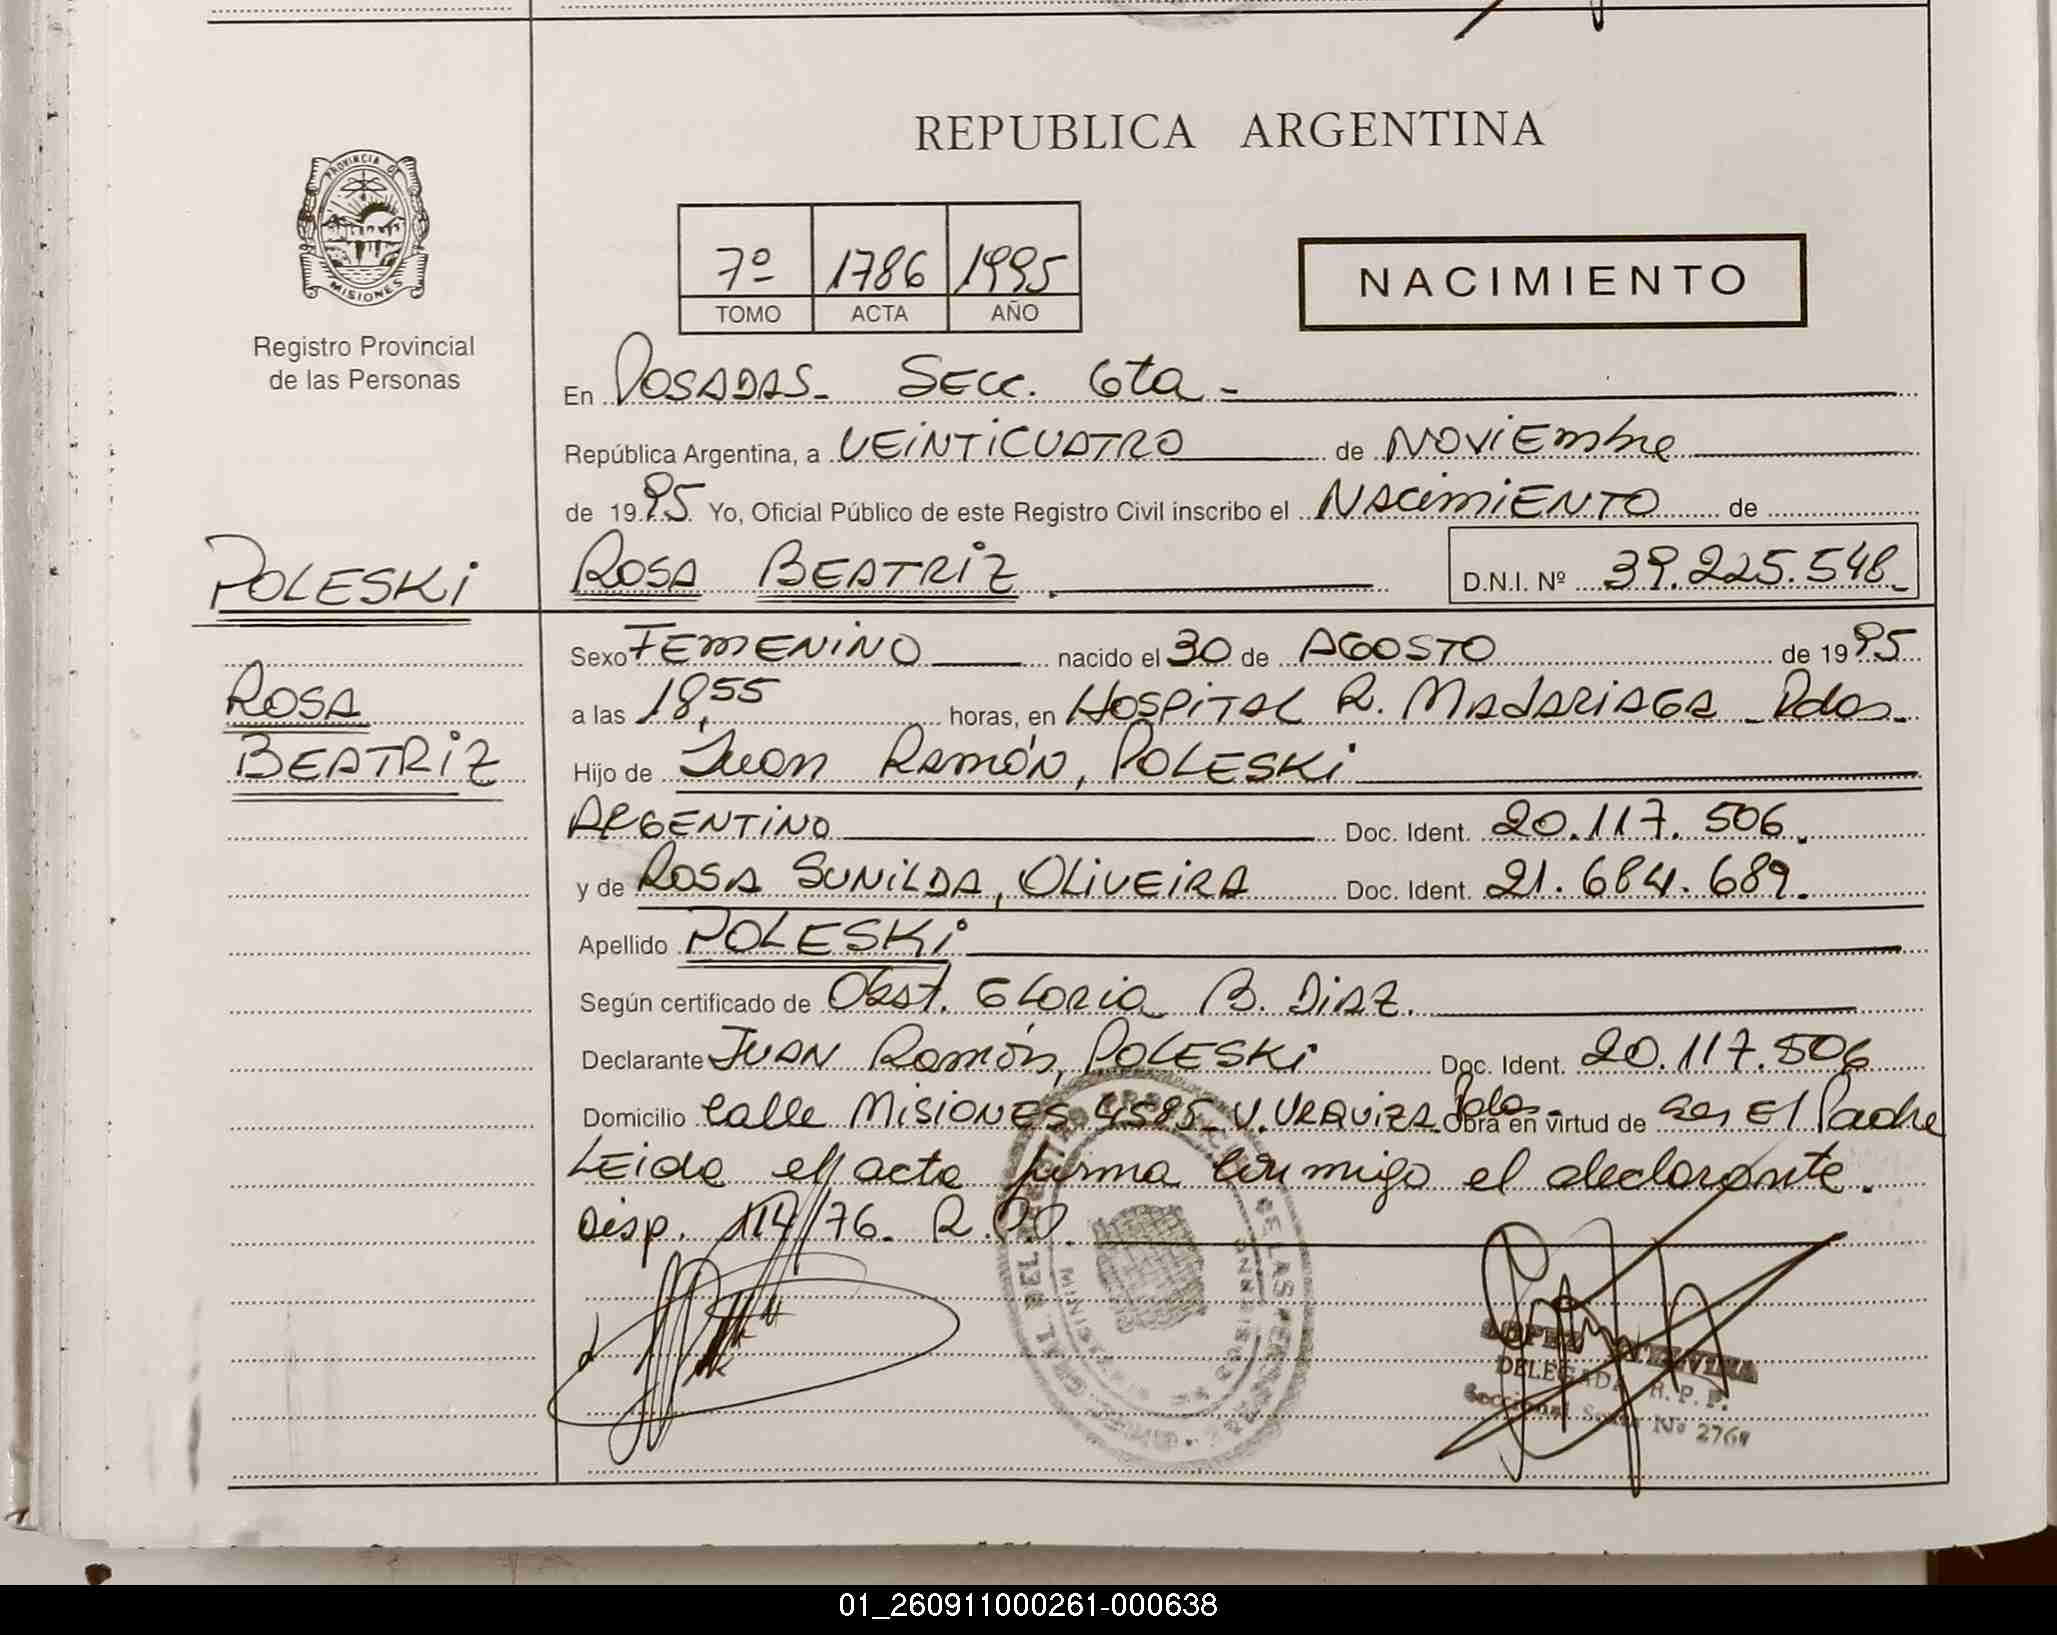 REPUBLICA ARGENTINA
PROVINCIA DE
MISIONES
Registro Provincial
de las Personas
7º 1786 1995
TOMO ACTA AÑO
NACIMIENTO
En POSADAS- SECC. 6ta -
República Argentina, a VEINTICUATRO de NOVIEMbre
de 1995 Yo, Oficial Público de este Registro Civil inscribo el NACIMIENTO de
POLESKI
ROSA BEATRIZ. D.N.I. Nº 39.225.548-
Sexo FEMENINO nacido el 30 de AGOSTO de 1995
ROSA
a las 18,55 horas, en HOSPITAL R. MADARIAGA - Pdas-
BEATRIZ
Hijo de Juan RAMÓN, POLESKI
ARGENTINO Doc. Ident. 20.117.506.
y de ROSA SUNILDA, OLIVEIRA Doc. Ident. 21.684.689.
Apellido POLESKI
Según certificado de Obst. GLORIA B. DIAZ.
Declarante JUAN Ramón, POLESKI Doc. Ident. 20.117.506
Domicilio Calle MISIONES 4595- V. URQUIZA Pdas- Obra en virtud de ser El Padre
LEida el acta firma conmigo el declarante.
Disp. 114/76. R.P.P.
DELEGADA R. P. P.
Seccional Sexta Nº 2764
01_260911000261-000638